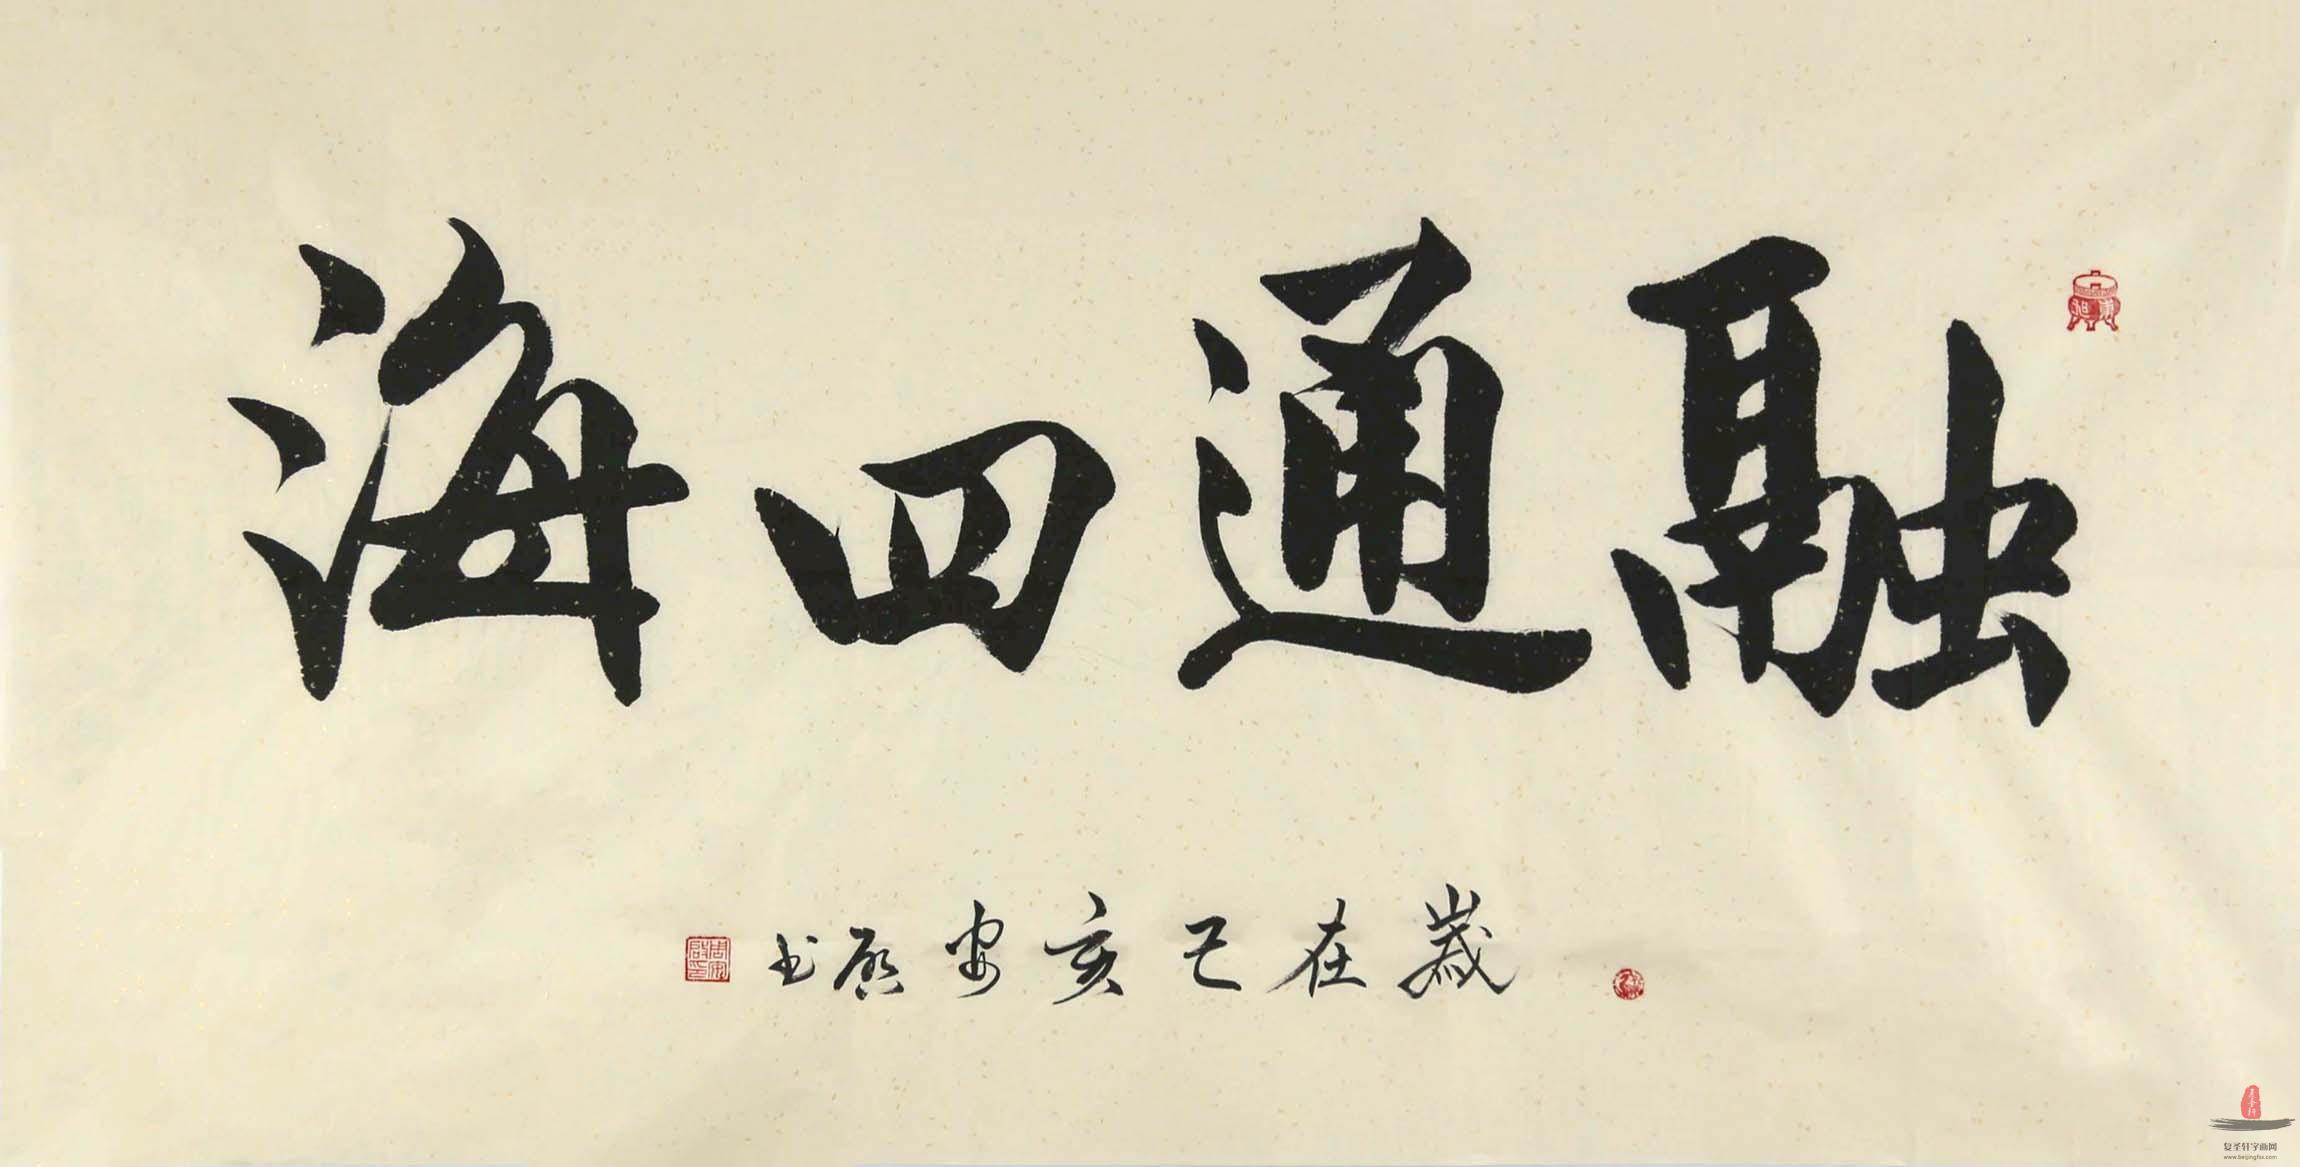 融通四海
岁在己亥安启书
复圣轩字画网
www.beijingfsx.com